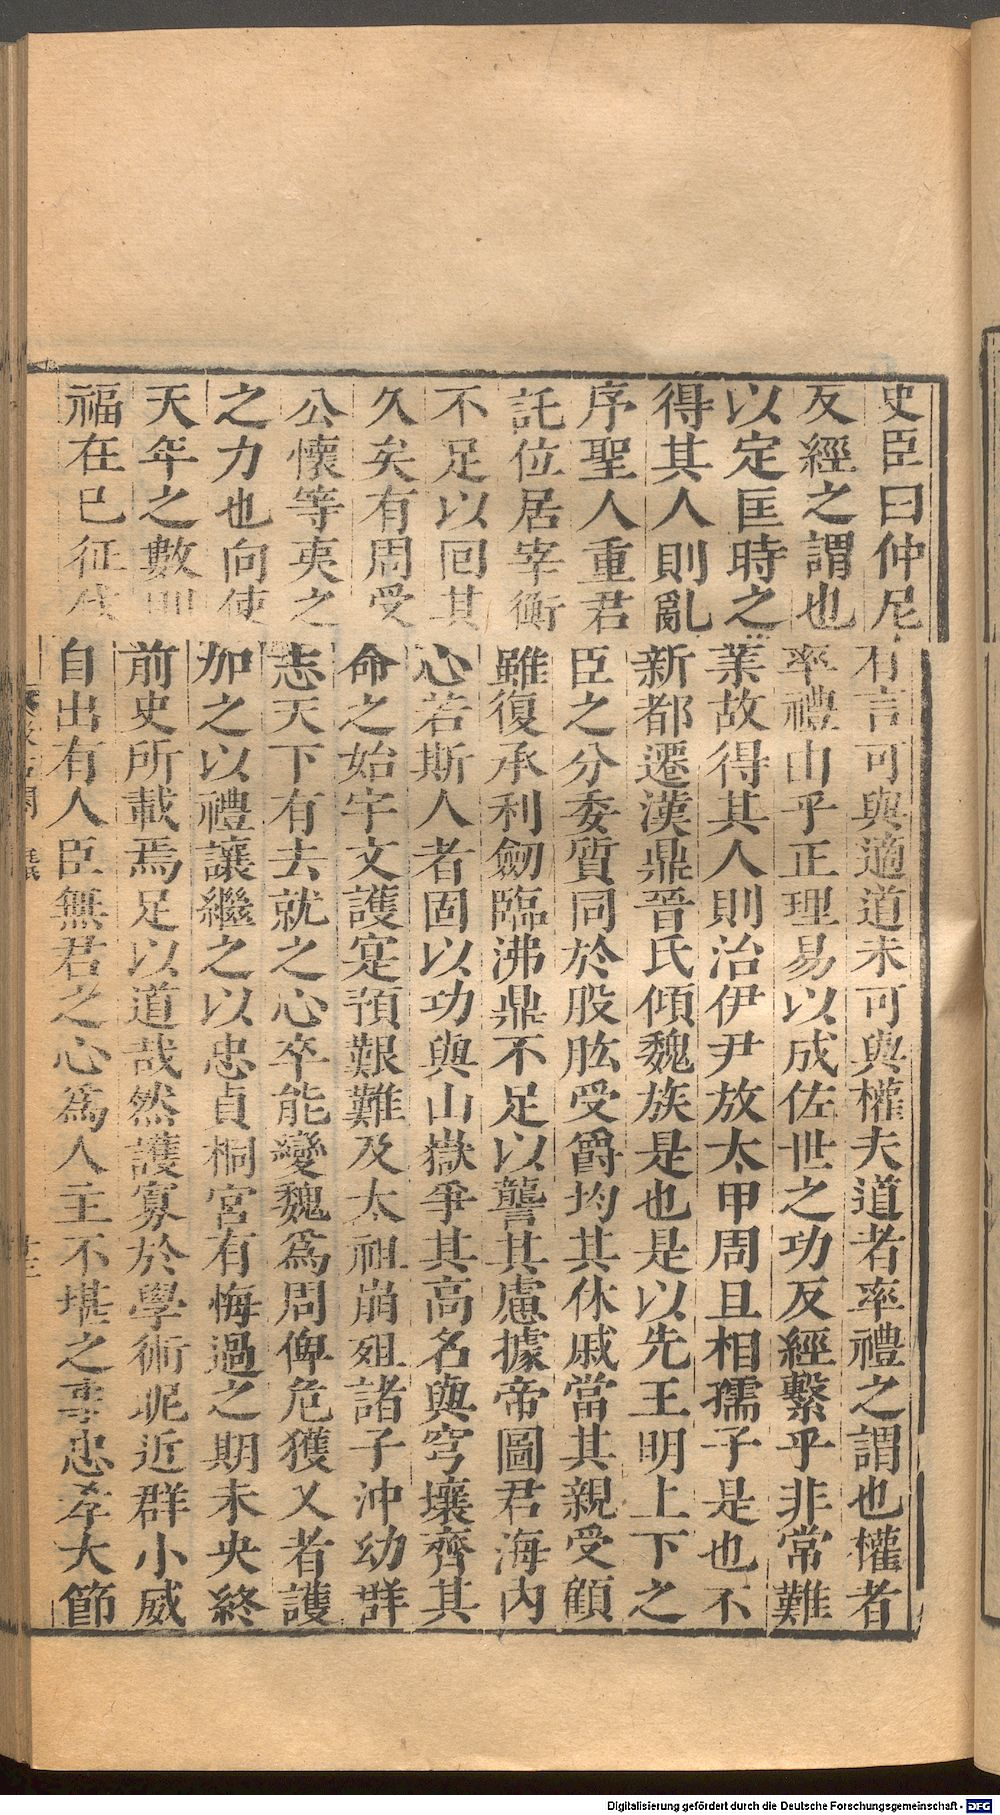 史臣曰仲尼有言可與適道未可與權夫道者率禮之謂也權者
反經之謂也率禮由乎正理易以成佐世之功反經繫乎非常難
以定匡時之業故得其人則治伊尹放太甲周旦相孺子是也不
得其人則亂新都遷漢鼎晉氏傾魏族是也是以先王明上下之
序聖人重君臣之分委質同於股肱受爵均其休戚當其親受顧
託位居宰衡雖復承利劒臨沸鼎不足以讋其慮據帝圖君海內
不足以回其心若斯人者固以功與山嶽爭其高名與穹壤齊其
久矣有周受命之始宇文護寔預艱難及太祖崩殂諸子沖幼群
公懷等夷之志天下有去就之心卒能變魏為周俾危獲乂者護
之力也向使加之以禮讓繼之以忠貞桐宮有悔過之期未央終
天年之數則前史所載焉足以道哉然護寡於學術昵近群小威
福在已征伐自出有人臣無君之心為人主不堪之事忠孝大節
Digitalisierung gefördert durch die Deutsche Forschungsgemeinschaft - DFG